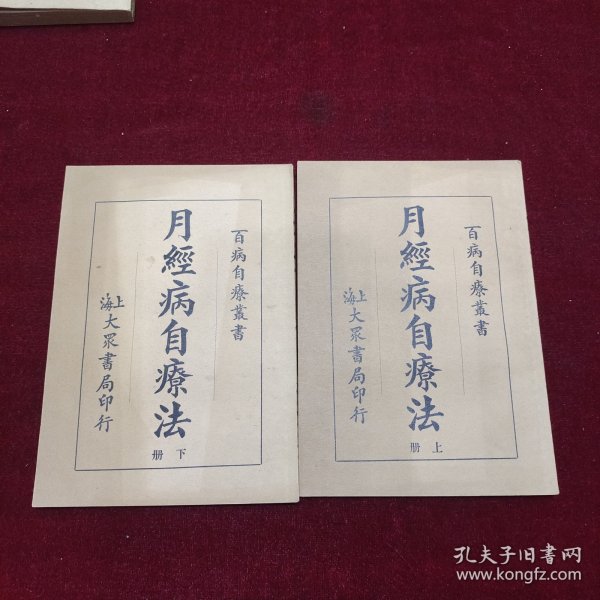 百病自療叢書
月經病自療法
上册
上海大眾書局印行
百病自療叢書
月經病自療法
下册
上海大眾書局印行
孔夫子旧书网
www.kongfz.com